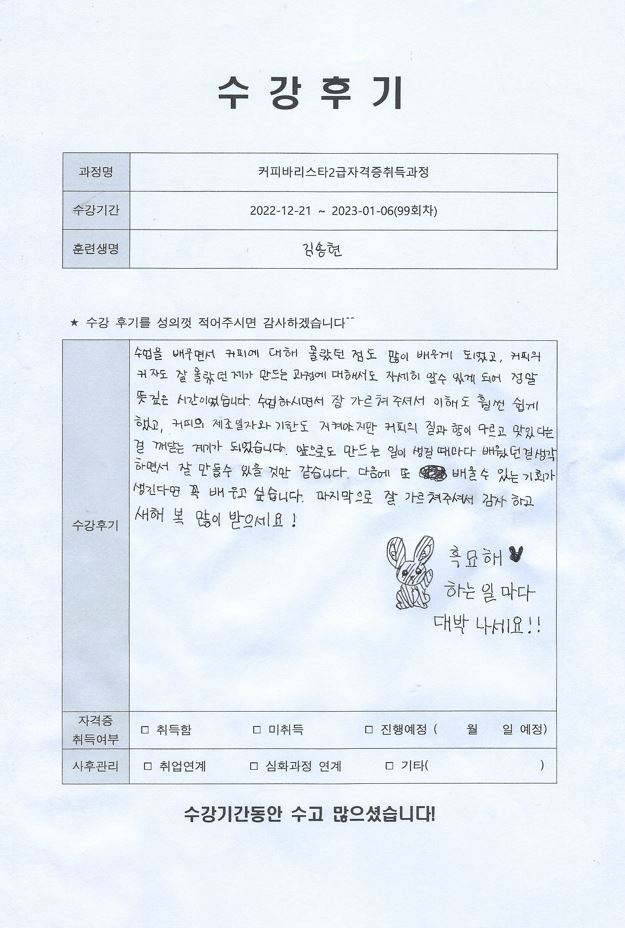 수 강 후 기
과정명 커피바리스타2급자격증취득과정
수강기간 2022-12-21 ~ 2023-01-06(99회차)
훈련생명 김송현
★ 수강 후기를 성의껏 적어주시면 감사하겠습니다^^
수강후기
수업을 배우면서 커피에 대해 몰랐던 점도 많이 배우게 되었고, 커피의
커자도 잘 몰랐던 제가 만드는 과정에 대해서도 자세히 알수 있게 되어 정말
뜻깊은 시간이었습니다. 수업하시면서 잘 가르쳐 주셔서 이해도 훨씬 쉽게
했고, 커피의 제조일자와 기한도 지켜야지만 커피의 질과 향이 다르고 맛있다는
걸 깨닫는 계기가 되었습니다. 앞으로도 만드는 일이 생길 때마다 배웠던걸 생각
하면서 잘 만들수 있을 것만 같습니다. 다음에 또 배울수 있는 기회가
생긴다면 꼭 배우고 싶습니다. 마지막으로 잘 가르쳐주셔서 감사 하고
새해 복 많이 받으세요!
흑묘해
하는 일 마다
대박 나세요!!
자격증
취득여부 □ 취득함 □ 미취득 □ 진행예정 ( 월 일 예정)
사후관리 □ 취업연계 □ 심화과정 연계 □ 기타( )
수강기간동안 수고 많으셨습니다!